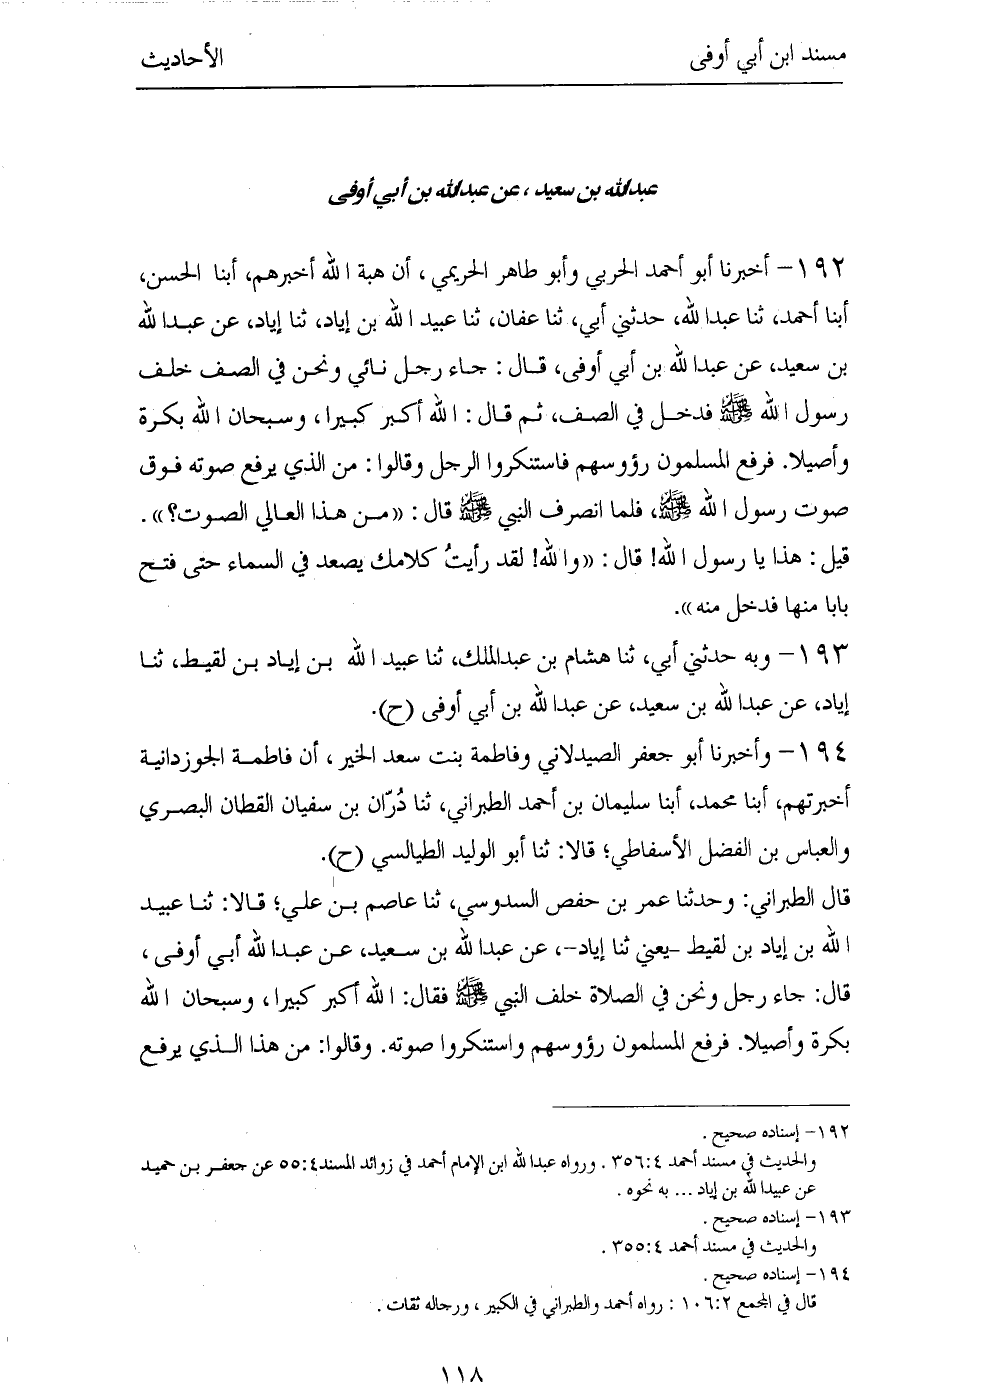 مسند ابن أبي أوفى
الأحاديث
عبدالله بن سعيد ، عن عبدالله بن أبي أوفى
١٩٢- أخبرنا أبو أحمد الحربي وأبو طاهر الحريمي ، أن هبة الله أخبرهم، أبنا الحسن،
أبنا أحمد، ثنا عبدالله، حدثني أبي، ثنا عفان، ثنا عبيد الله بن إياد، ثنا إياد، عن عبدالله
بن سعيد، عن عبدالله بن أبي أوفى، قال : جاء رجل نائي ونحن في الصف خلف
رسول الله ﷺ فدخل في الصف، ثم قال : الله أكبر كبيرا ، وسبحان الله بكرة
وأصيلا. فرفع المسلمون رؤوسهم فاستنكروا الرجل وقالوا : من الذي يرفع صوته فوق
صوت رسول الله ﷺ، فلما انصرف النبي ﷺ قال : «من هذا العالي الصوت؟» .
قيل : هذا يا رسول الله! قال : «والله! لقد رأيتُ كلامك يصعد في السماء حتى فتح
بابا منها فدخل منه».
١٩٣- وبه حدثني أبي، ثنا هشام بن عبدالملك، ثنا عبيد الله بن إياد بن لقيط، ثنا
إياد، عن عبدالله بن سعيد، عن عبدالله بن أبي أوفى (ح).
١٩٤- وأخبرنا أبو جعفر الصيدلاني وفاطمة بنت سعد الخير ، أن فاطمة الجوزدانية
أخبرتهم، أبنا محمد، أبنا سليمان بن أحمد الطبراني، ثنا دُرّان بن سفيان القطان البصري
والعباس بن الفضل الأسفاطي؛ قالا: ثنا أبو الوليد الطيالسي (ح).
قال الطبراني: وحدثنا عمر بن حفص السدوسي، ثنا عاصم بن علي؛ قالا: ثنا عبيد
الله بن إياد بن لقيط -يعني ثنا إياد-، عن عبدالله بن سعيد، عن عبدالله أبي أوفى ،
قال: جاء رجل ونحن في الصلاة خلف النبي ﷺ فقال: الله أكبر كبيرا ، وسبحان الله
بكرة وأصيلا. فرفع المسلمون رؤوسهم واستنكروا صوته. وقالوا: من هذا الذي يرفع
١٩٢- إسناده صحيح .
والحديث في مسند أحمد ٣٥٦:٤ . ورواه عبدالله ابن الإمام أحمد في زوائد المسند ٥٥:٤ عن جعفر بن حميد
عن عبيدالله بن إياد ... به نحوه .
١٩٣- إسناده صحيح .
والحديث في مسند أحمد ٣٥٥:٤ .
١٩٤- إسناده صحيح .
قال في المجمع ١٠٦:٢ : رواه أحمد والطبراني في الكبير ، ورجاله ثقات .
١١٨